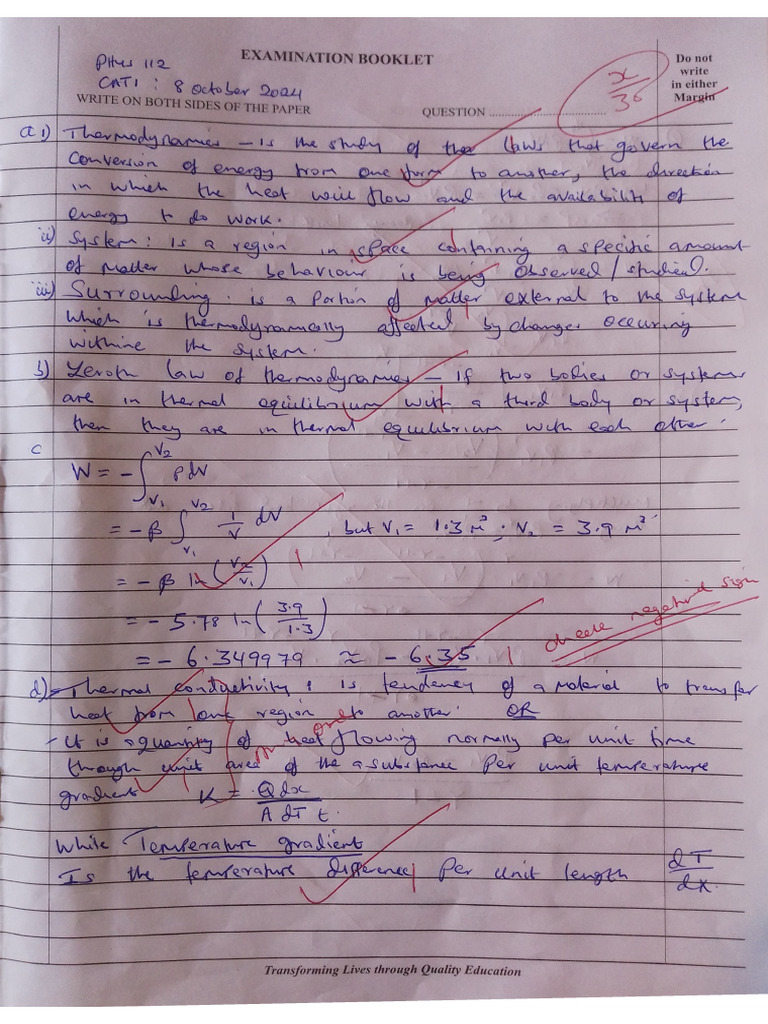 EXAMINATION BOOKLET
Do not
write
in either
Margin
PHYS 112
CAT1 : 8 October 2024
x/36
WRITE ON BOTH SIDES OF THE PAPER QUESTION ..............................
a i) Thermodynamics – is the study of the laws that govern the
conversion of energy from one form to another, the direction
in which the heat will flow and the availability of
energy to do work.
ii) System : is a region in space containing a specific amount
of matter whose behaviour is being observed / studied.
iii) Surrounding : is a portion of matter external to the system
which is thermodynamically affected by changes occuring
withine the system.
b) Zeroth law of thermodynamics – if two bodies or systems
are in thermal equilibrium with a third body or system,
then they are in thermal equilibrium with each other.
c
W = -∫_{V1}^{V2} P dV
= -β ∫_{V1}^{V2} 1/V dV , but V1 = 1.3 M³ ; V2 = 3.9 M³
= -β ln (V2/V1) 1
= -5.78 ln (3.9/1.3)
= -6.349979 ≈ -6.35 1
check negative sign
d) - Thermal conductivity : is tendency of a material to transfer
heat from one region to another. OR
- It is quantity of heat flowing normally per unit time
through unit area of the a substance per unit temperature
gradient K = Qdx / A dT t.
While Temperature gradient
Is the temperature difference per unit length dT/dx.
Transforming Lives through Quality Education